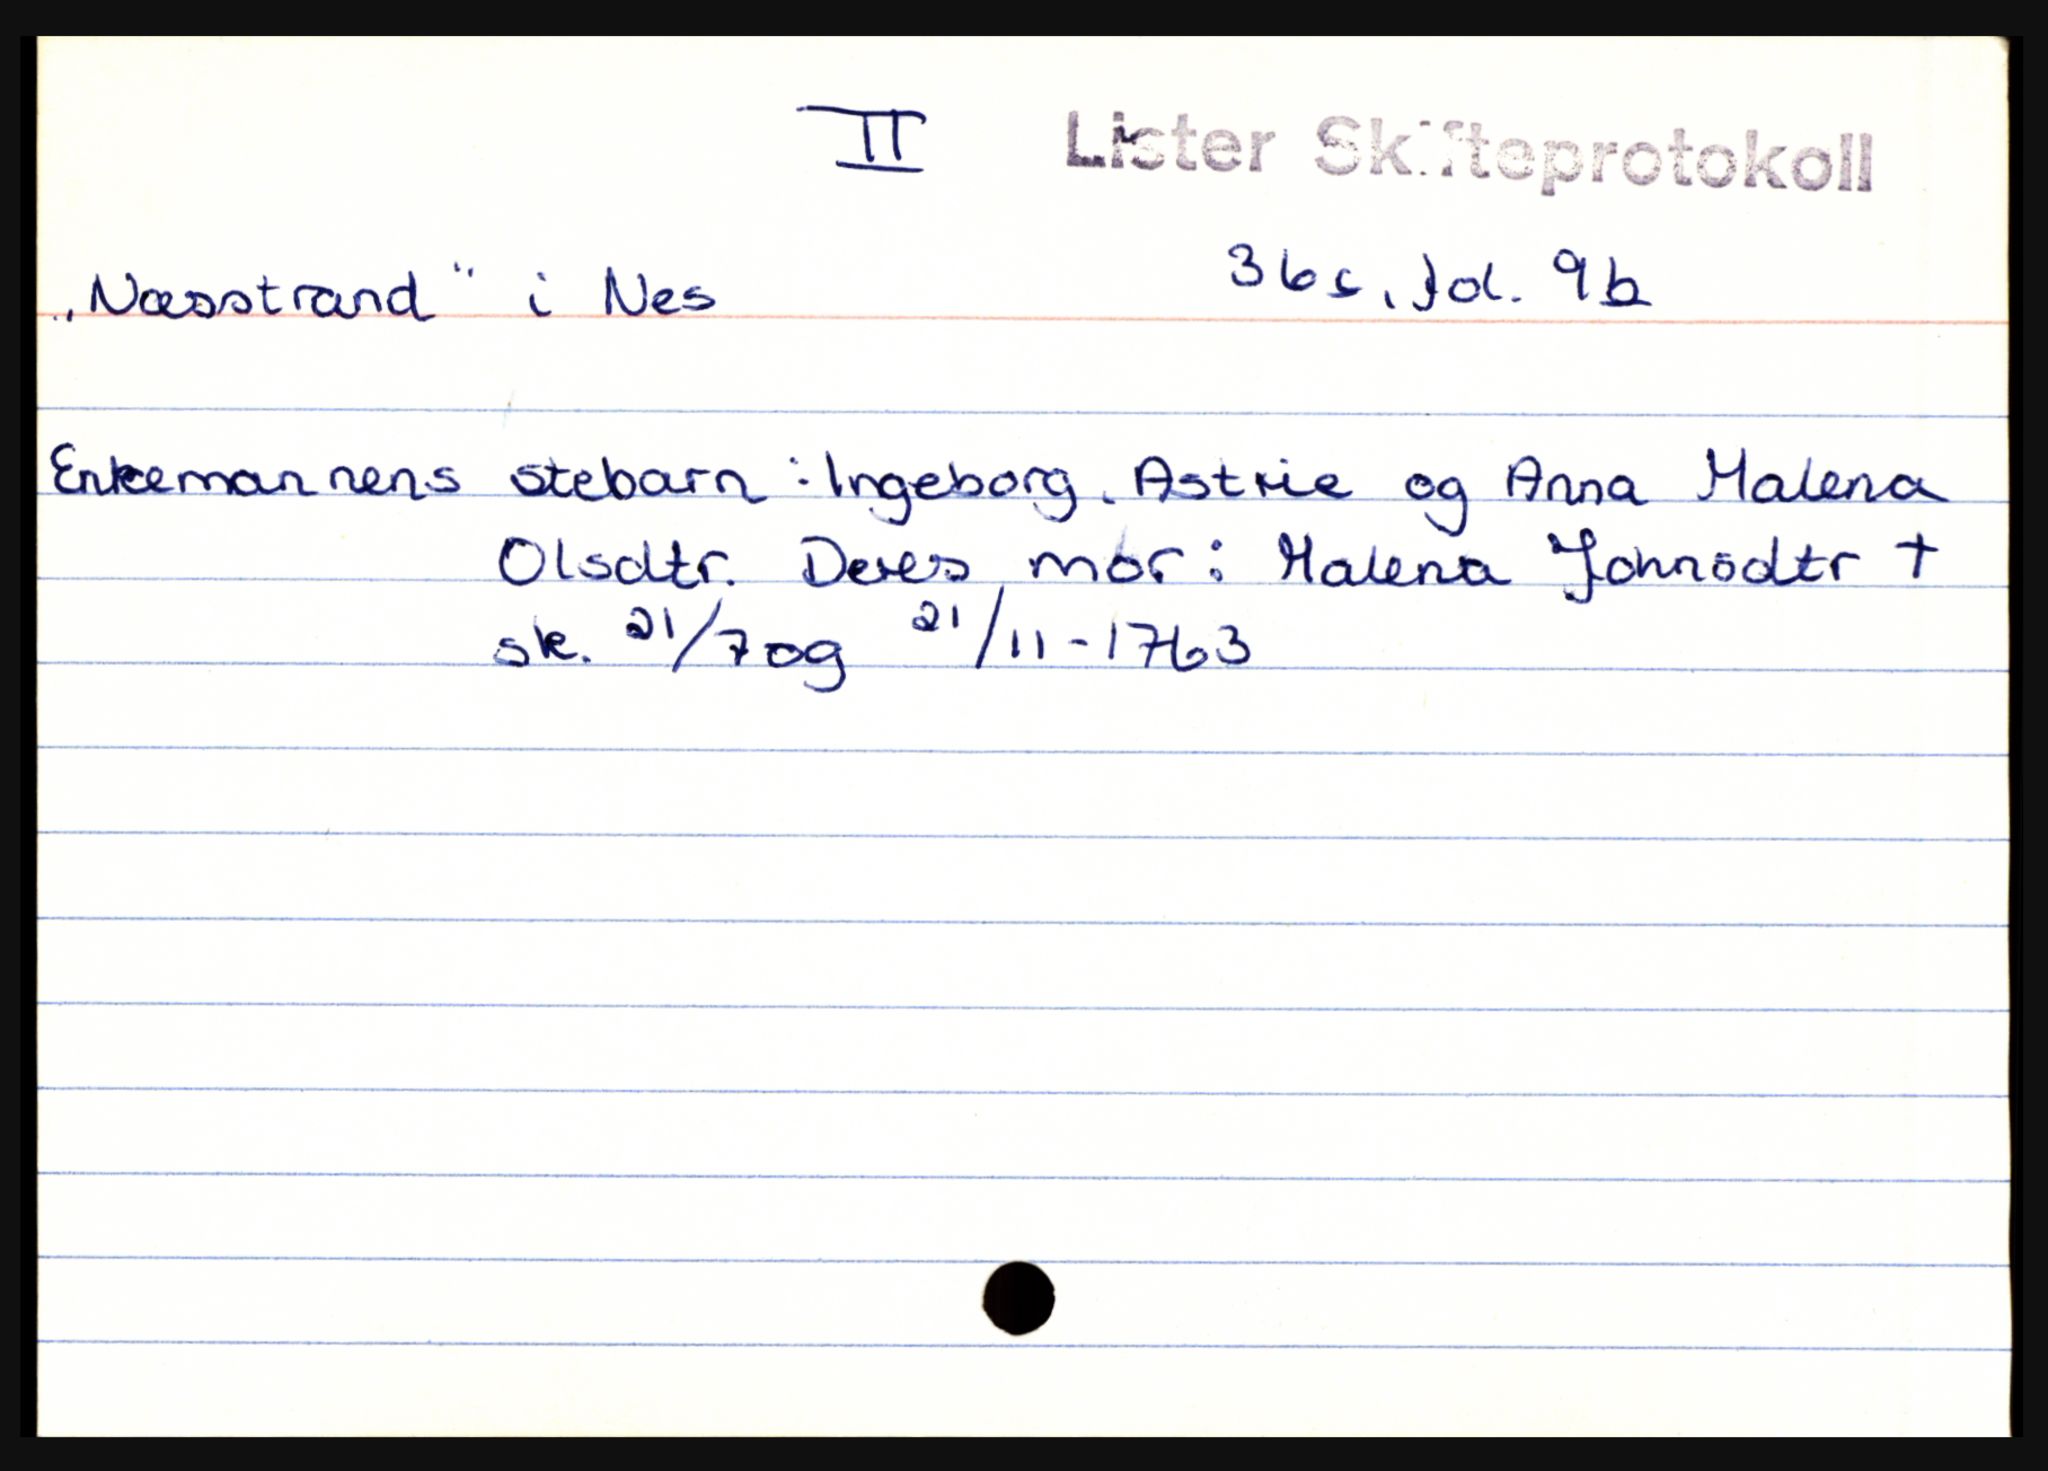 II Lister Skifteprotokoll
„Næsstrand" i Nes 36c, fol. 9b
Enkemannens stebarn: Ingeborg, Astrie og Anna Malena
Olsdtr. Deres mor: Malena Johnsdtr †
sk. 21/7 og 21/11-1763